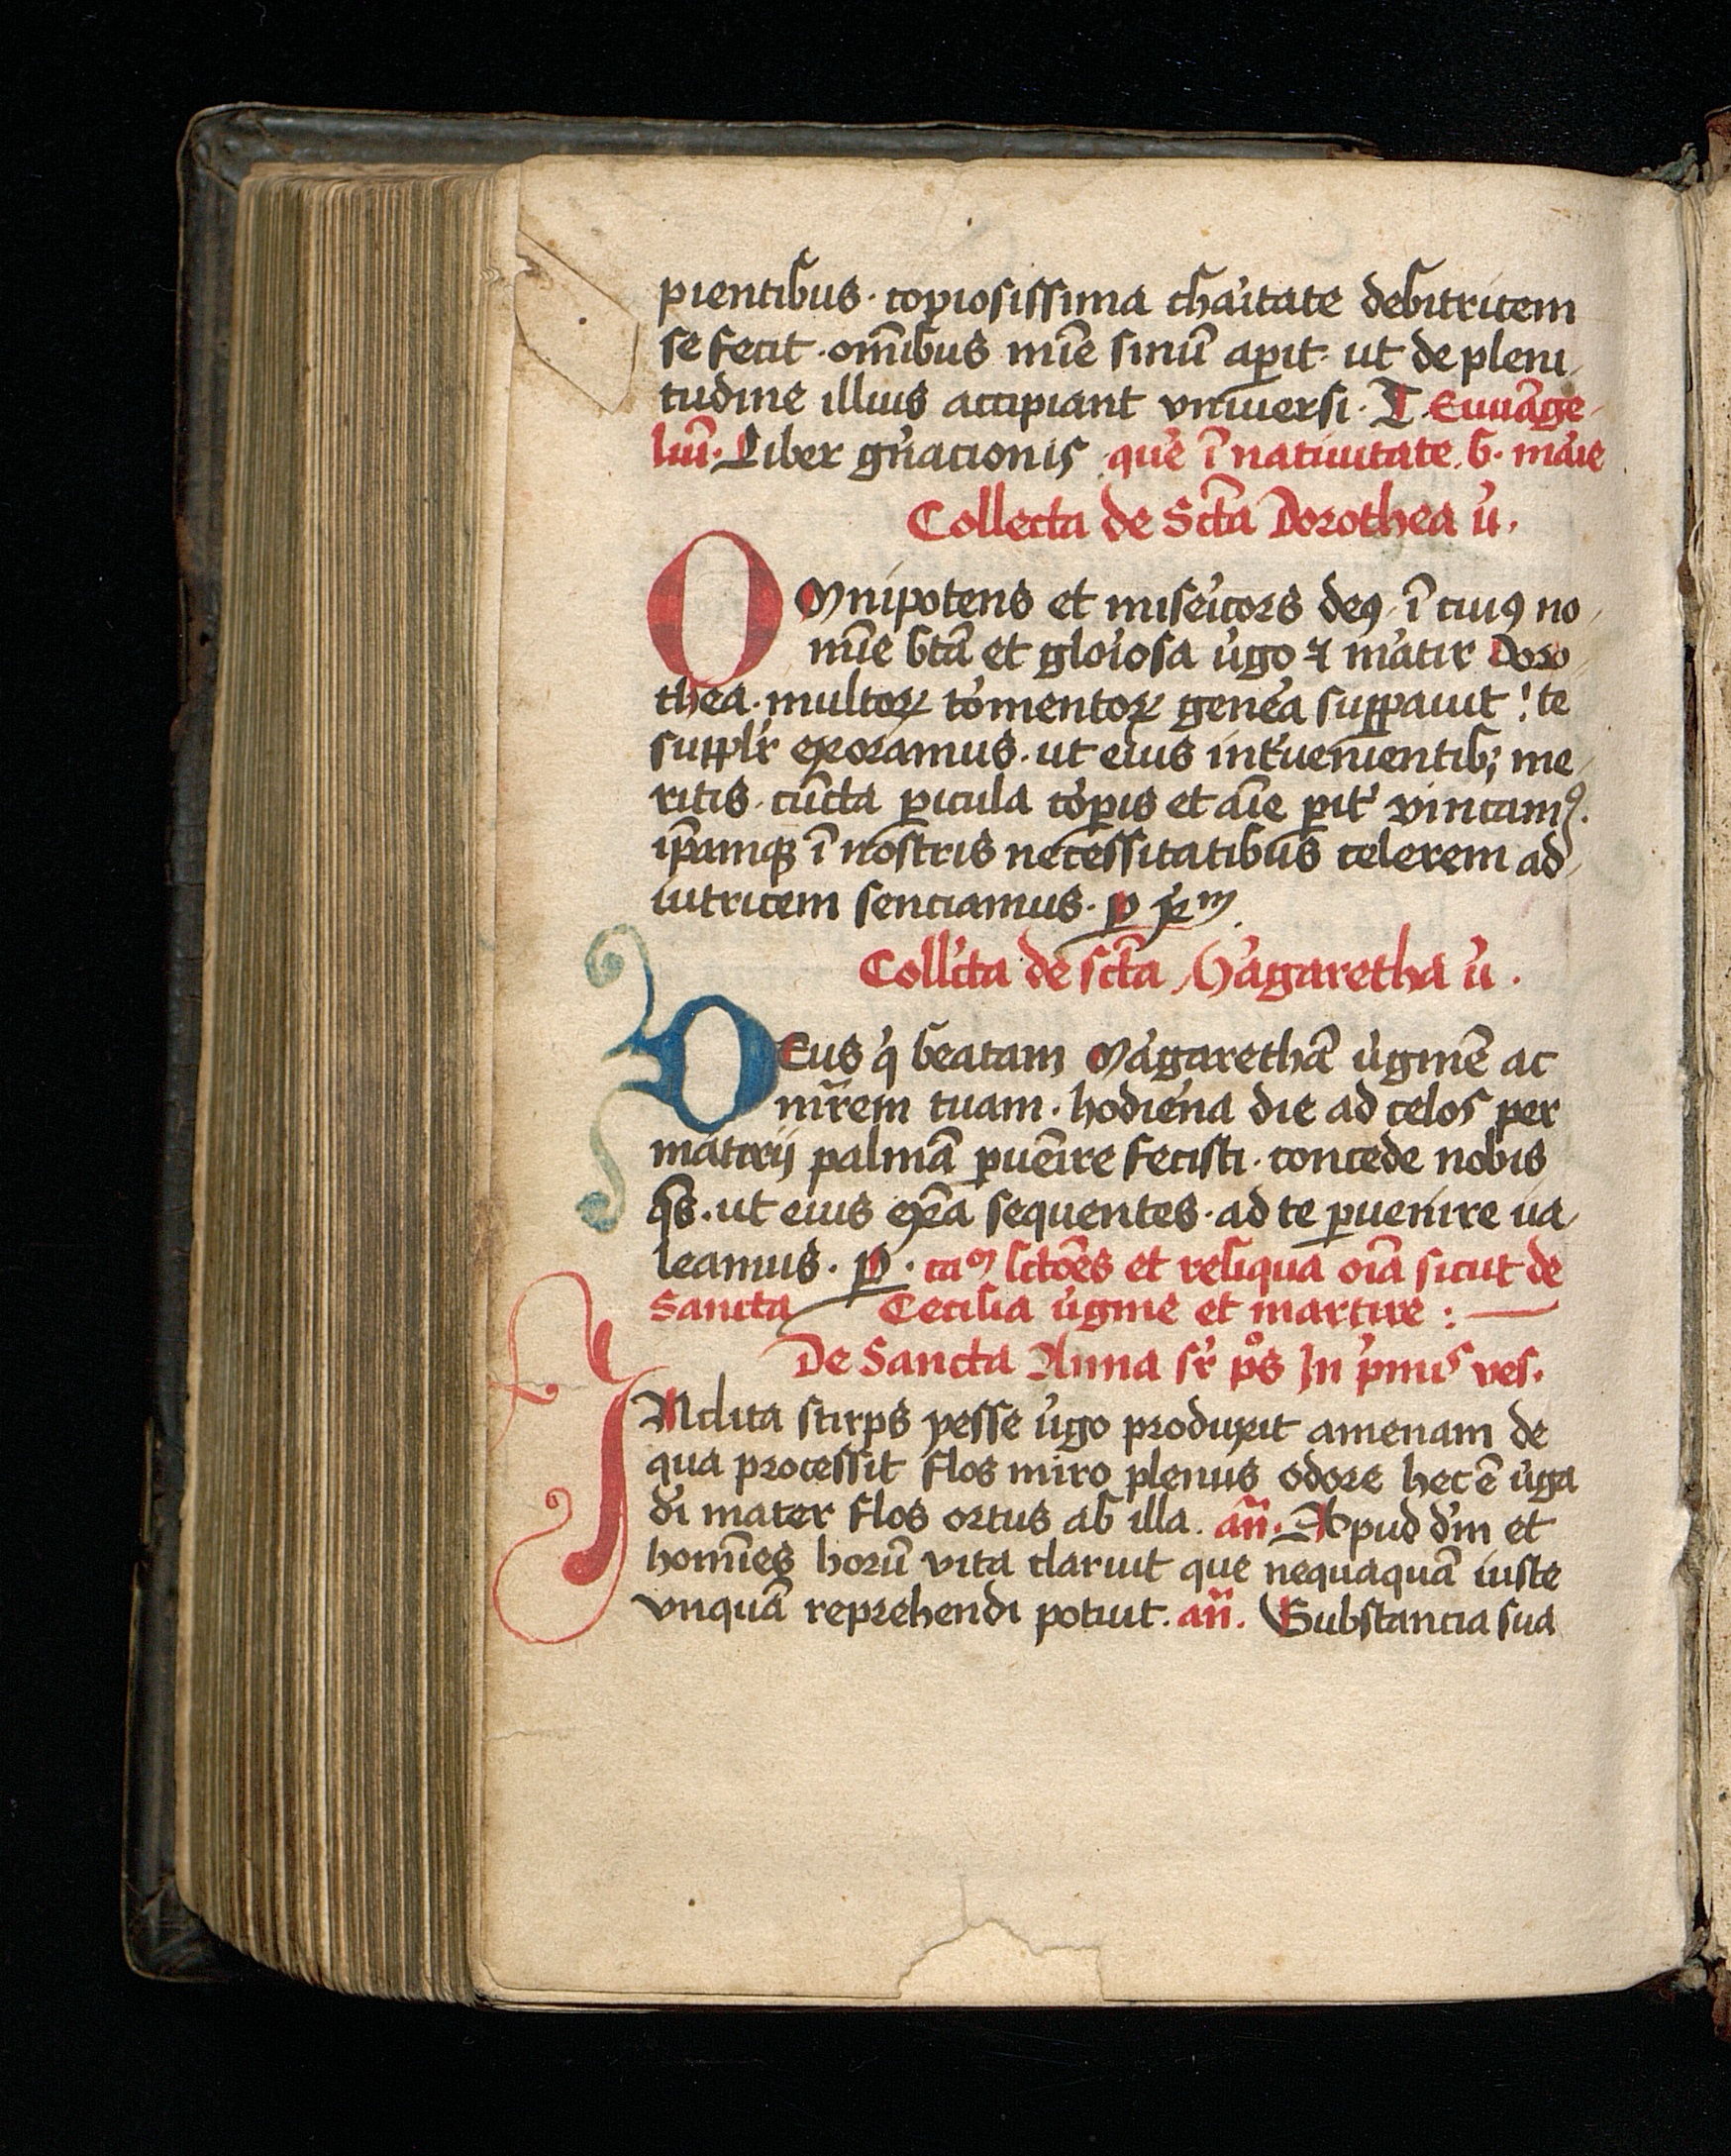 pientibus · copiosissima cha'itate debitricem
se fecit · om̄ibus mīe sinū apit · ut de pleni
tudine illius accipiant vniuersi · T. Euuāge
liū · Liber gn'acionis que' ī natiuitate · b · ma'ie
Collecta de Sctā Dorothea u'.
Omnipotens et mise'icors deꝯ ī cuiꝯ no
mīe btā et glo'iosa u'go ⁊ ma'tir Doro
thea · multoꝝ to'mentoꝝ gene'a suꝑpauit ! te
suppl'r exoramus · ut eius int'uenientibꝫ me
ritis · cūcta ꝑicula co'ꝑis et aīe ꝑit' vincamꝯ.
ip̄amqꝫ ī nostris necessitatibus celerem ad
iutricem senciamus · p xp̄m
Coll'cta de sctā Ma'garetha u'.
DEus q' beatam Ma'garethā u'ginē ac
mr̄rem tuam · hodie'na die ad celos per
ma'tirij palmā ꝑuēire fecisti · concede nobis
qs̄ · ut eius exēa sequentes · ad te ꝑuenire ua
leamus · p · caᵐ lctōes et reliqua oīa sicut de
Sancta Cecilia u'gine et martire : —
De Sancta Anna sr' pº's In p'mis ves.
INclita stirps yesse u'go produxit amenam de
qua processit flos miro plenus odore hec ē u'ga
di' mater flos ortus ab illa. an̄. Apud d'm et
homīes horū vita claruit que nequaquā iuste
vnquā reprehendi potuit. an̄. Substancia sua